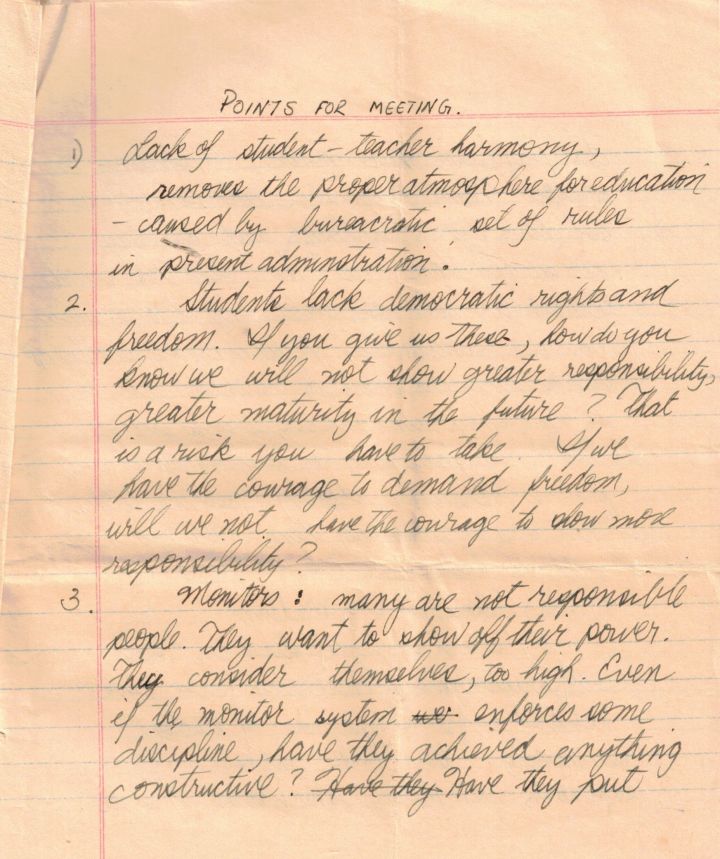 POINTS FOR MEETING.
1) Lack of student-teacher harmony,
removes the proper atmosphere for education
- caused by bureacratic set of rules
in present adminstration.
2. Students lack democratic rights and
freedom. If you give us these, how do you
know we will not show greater responsibility,
greater maturity in the future? That
is a risk you have to take. If we
have the courage to demand freedom,
will we not have the courage to show more
responsibility?
3. Monitors: many are not responsible
people. They want to show off their power.
They consider themselves, too high. Even
if the monitor system enforces some
discipline, have they achieved anything
constructive? Have they Have they put